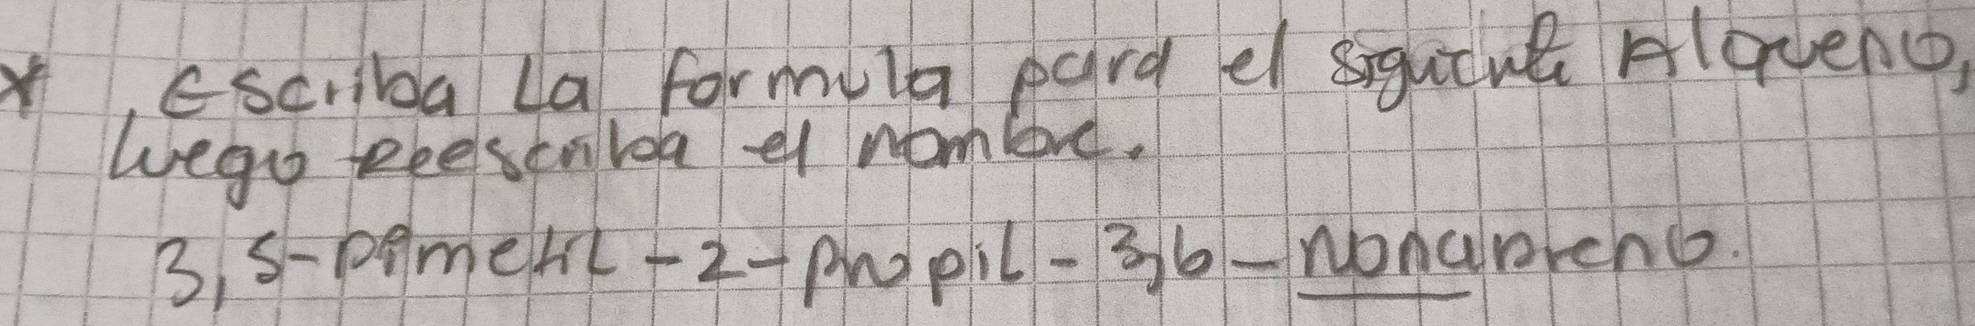 * Escriba La formula para el siguiente Alqueno,
luego Reescriba el nombre.
3,5-Dimetil-2-propil-3,6-nonadieno.